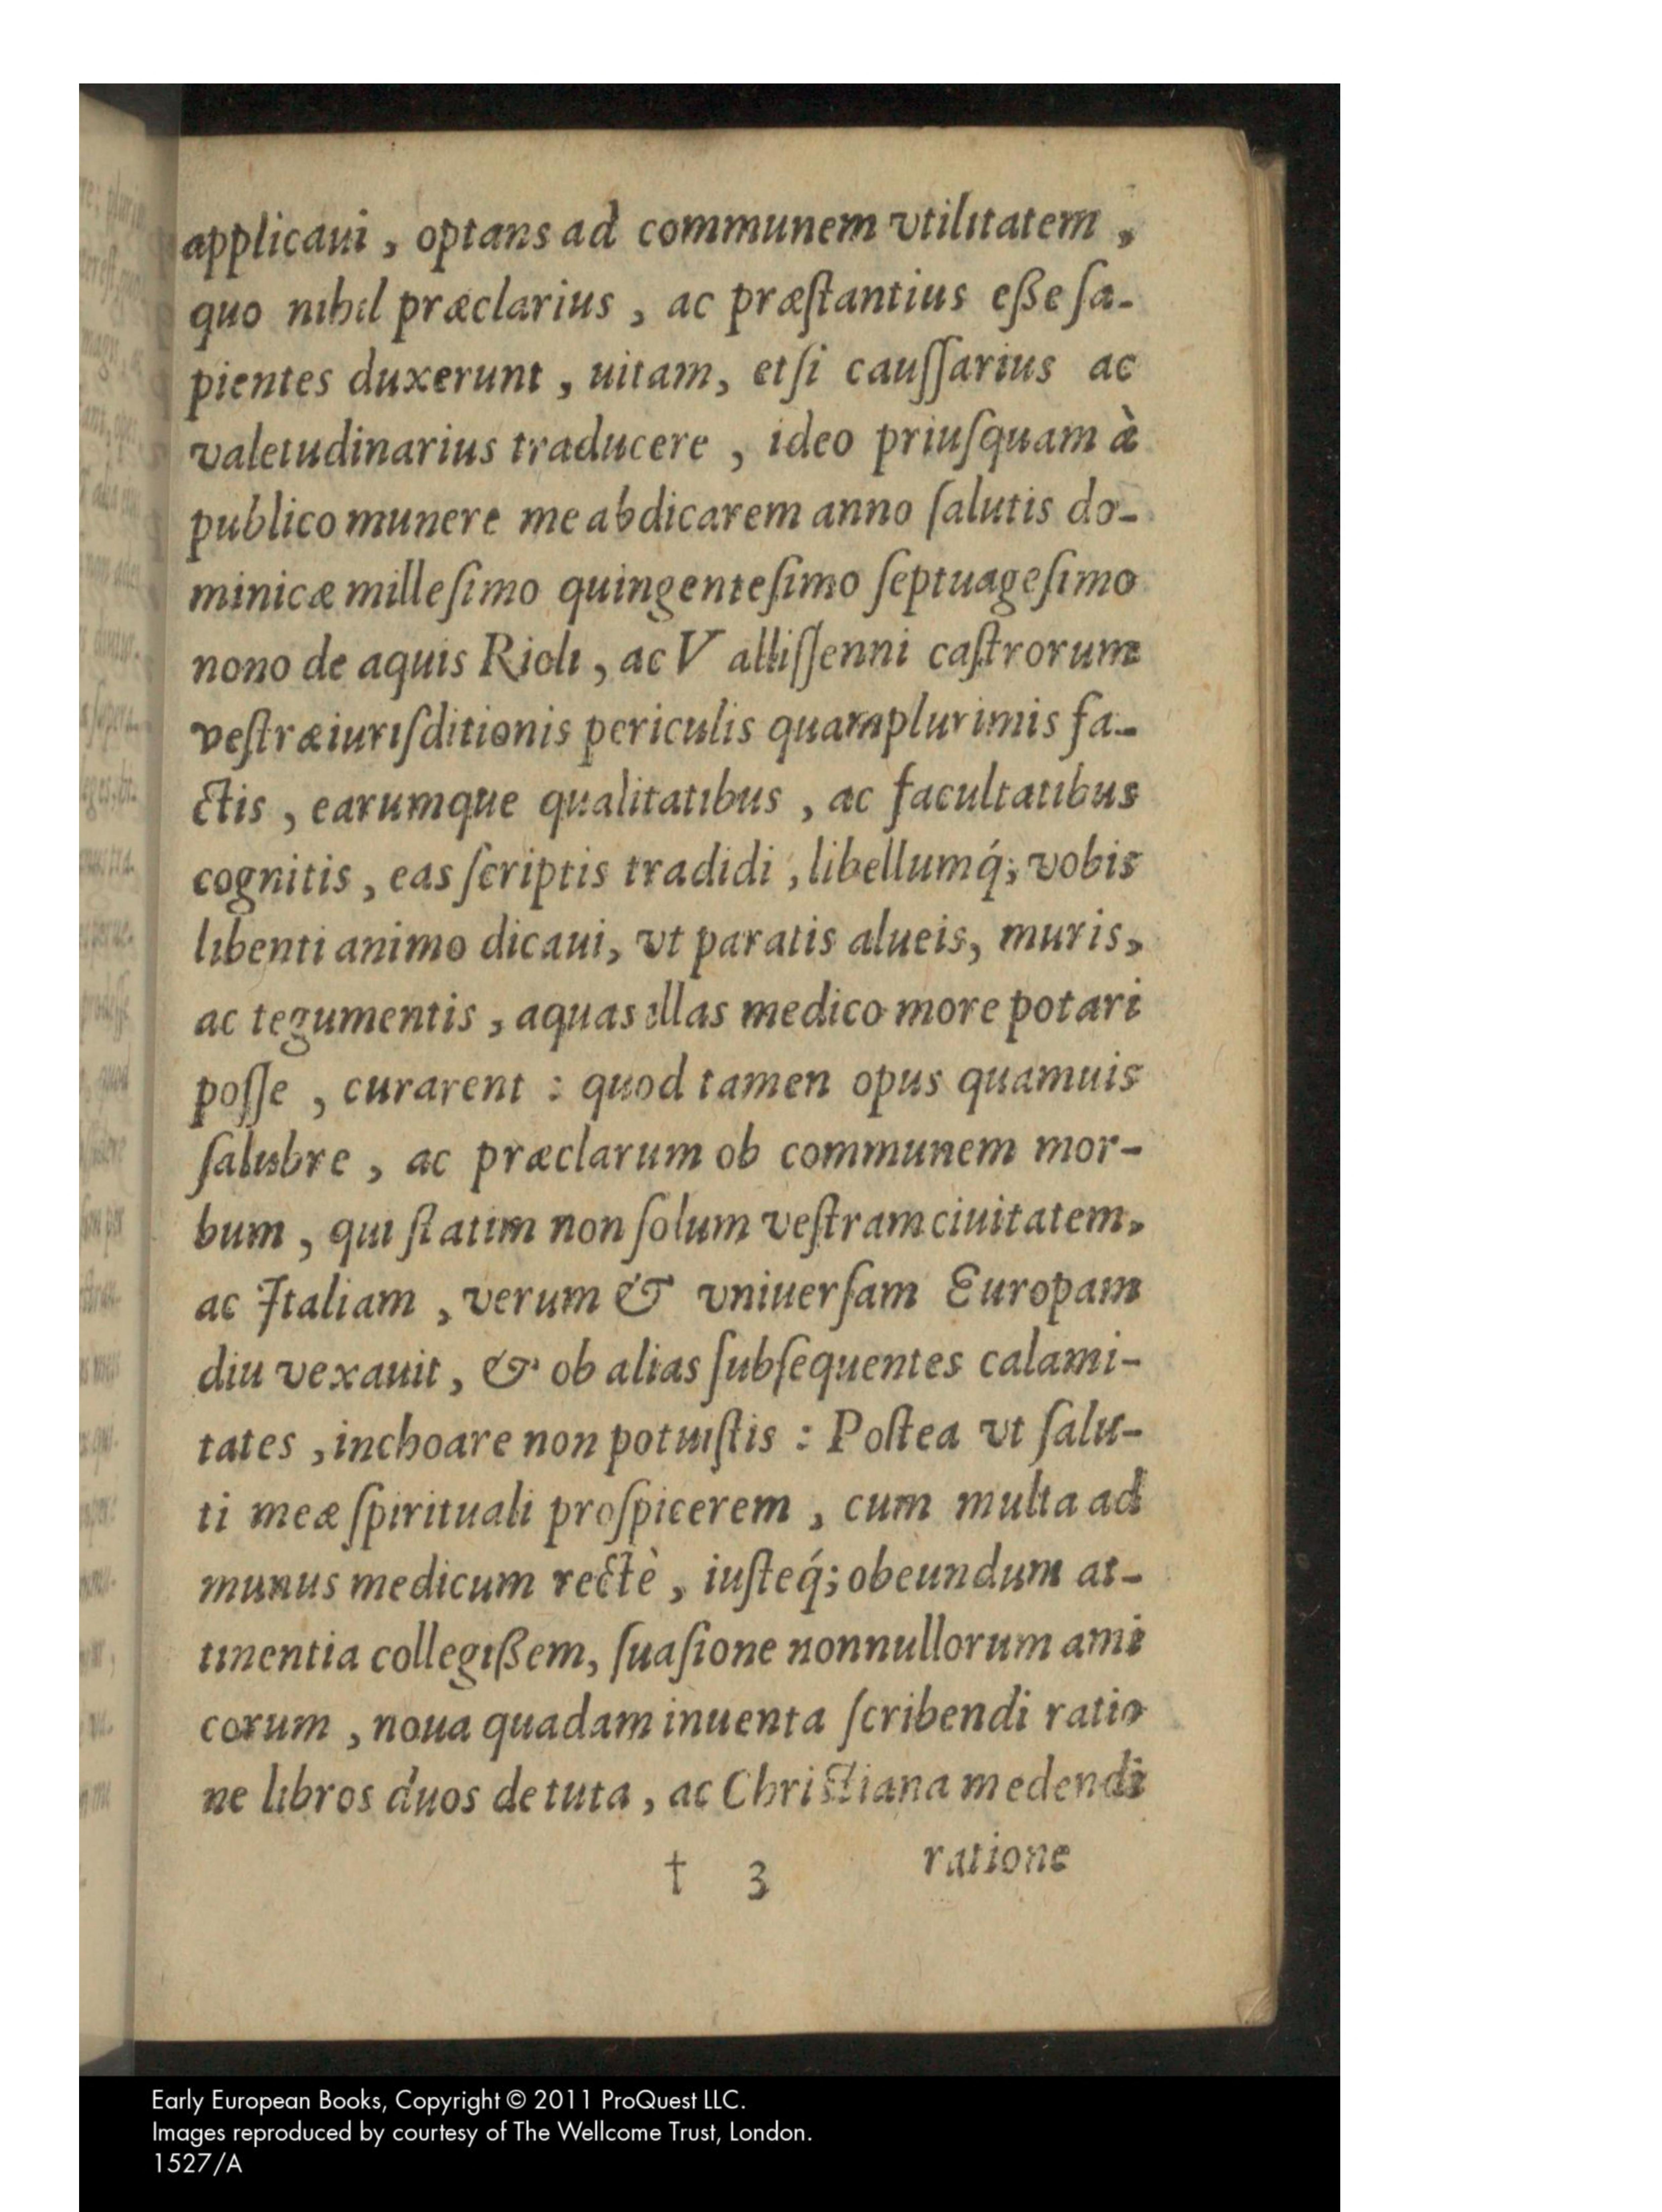 applicaui, optans ad communem vtilitatem,
quo nihil præclarius, ac præſtantius eße ſa-
pientes duxerunt, uitam, etſi cauſſarius ac
valetudinarius traducere, ideo priuſquam à
publico munere me abdicarem anno ſalutis do-
minicæ milleſimo quingenteſimo ſeptuageſimo
nono de aquis Rioli, ac V alliſſenni caſtrorum
veſtræ iuriſditionis periculis quamplurimis fa-
ctis, earumque qualitatibus, ac facultatibus
cognitis, eas ſcriptis tradidi, libellumq́; vobis
libenti animo dicaui, vt paratis alueis, muris,
ac tegumentis, aquas illas medico more potari
poſſe, curarent : quod tamen opus quamuis
ſalubre, ac præclarum ob communem mor-
bum, qui ſtatim non ſolum veſtram ciuitatem,
ac Italiam, verum & vniuerſam Europam
diu vexauit, & ob alias ſubſequentes calami-
tates, inchoare non potuiſtis : Poſtea vt ſalu-
ti meæ ſpirituali proſpicerem, cum multa ad
munus medicum rectè, iuſteq́; obeundum at-
tinentia collegißem, ſuaſione nonnullorum ami
corum, noua quadam inuenta ſcribendi ratio
ne libros duos de tuta, ac Chriſtiana medendi
† 3 ratione
Early European Books, Copyright © 2011 ProQuest LLC.
Images reproduced by courtesy of The Wellcome Trust, London.
1527/A